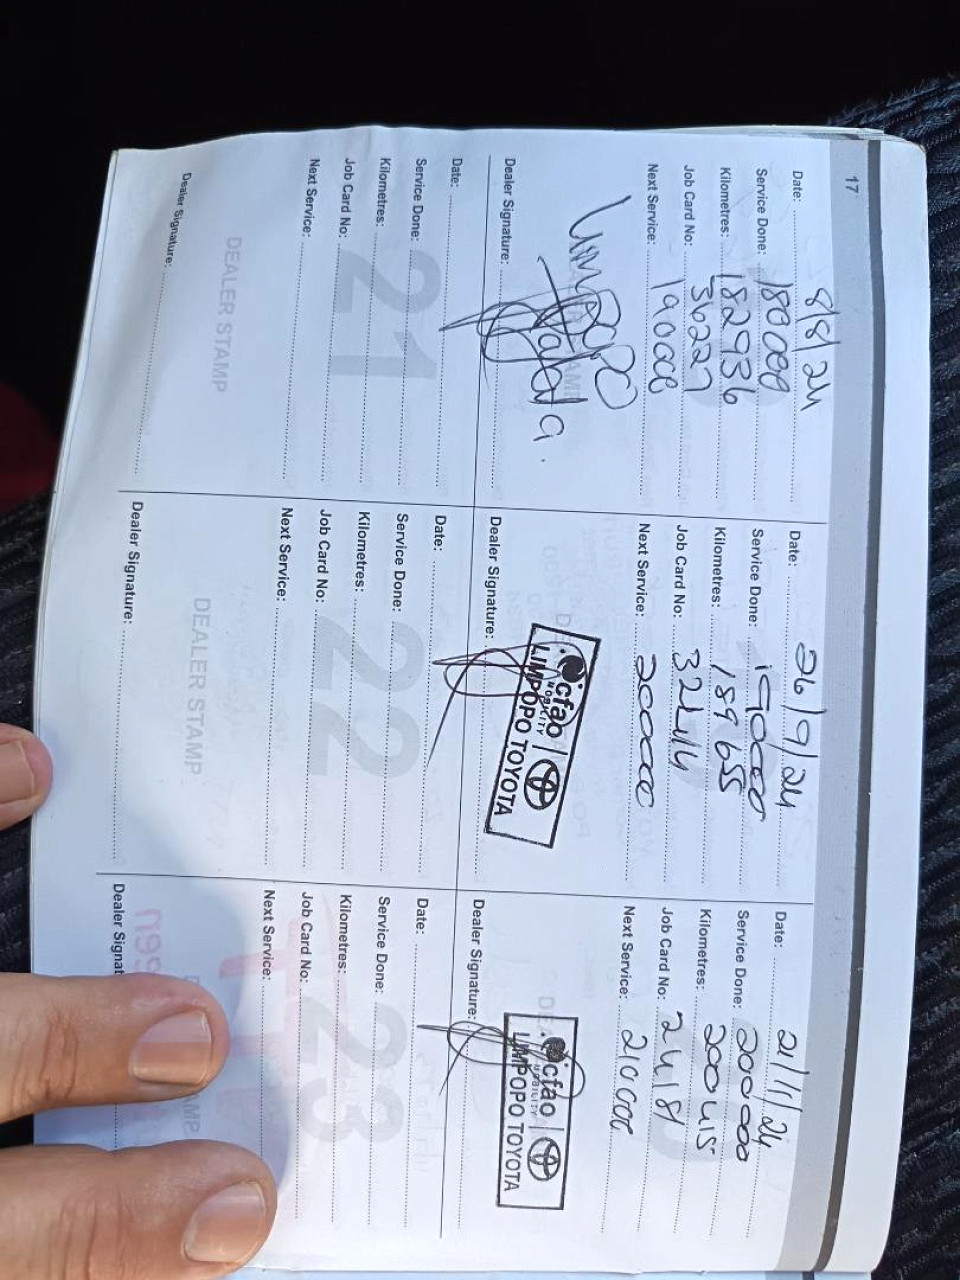 17
Date: 8/8/24
Service Done: 180 000
Kilometres: 182936
Job Card No: 36227
Next Service: 190000
Limpopo
Dealer Signature:
Date: 26/9/24
Service Done: 190000
Kilometres: 189655
Job Card No:
Next Service: 200000
cfao
MOBILITY
LIMPOPO TOYOTA
Dealer Signature:
Date: 21/11/24
Service Done: 200000
Kilometres: 200415
Job Card No: 24181
Next Service: 210000
cfao
MOBILITY
LIMPOPO TOYOTA
Dealer Signature:
21
Date:
Service Done:
Kilometres:
Job Card No:
Next Service:
DEALER STAMP
Dealer Signature:
22
Date:
Service Done:
Kilometres:
Job Card No:
Next Service:
DEALER STAMP
Dealer Signature:
23
Date:
Service Done:
Kilometres:
Job Card No:
Next Service:
Dealer Signat